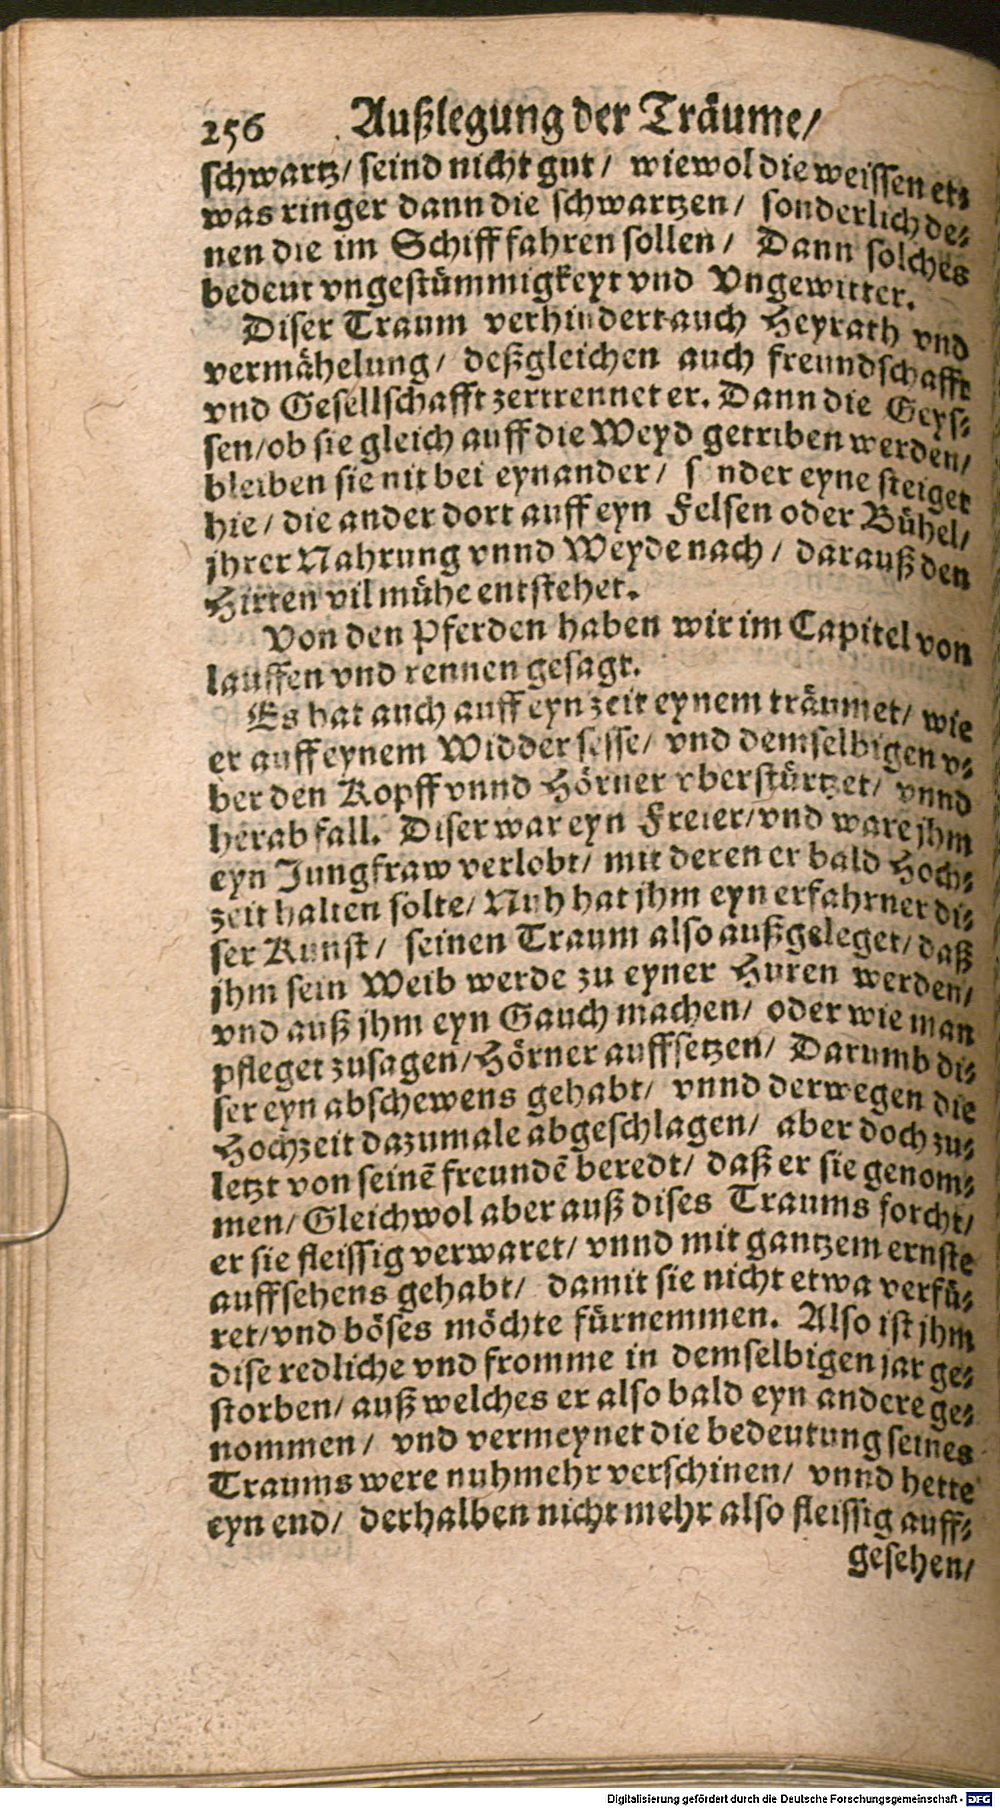 256 Außlegung der Träume/
schwartz/ seind nicht gut/ wiewol die weissen et⸗
was ringer dann die schwartzen/ sonderlich de⸗
nen die im Schiff fahren sollen/ Dann solches
bedeut vngestümmigkeyt vnd Vngewitter.
Diser Traum verhindert auch Heyrath vnd
vermähelung/ deßgleichen auch freundschafft
vnd Gesellschafft zertrennet er. Dann die Geys⸗
sen/ob sie gleich auff die Weyd getriben werden/
bleiben sie nit bei eynander/ sonder eyne steiget
hie/ die ander dort auff eyn Felsen oder Bühel/
jhrer Nahrung vnnd Weyde nach/ darauß den
Hirten vil mühe entstehet.
Von den Pferden haben wir im Capitel von
lauffen vnd rennen gesagt.
Es hat auch auff eyn zeit eynem träumet/ wie
er auff eynem Widder sesse/ vnd demselbigen v⸗
ber den Kopff vnnd Hörner vberstürtzet/ vnnd
herab fall. Diser war eyn Freier/vnd ware jhm
eyn Jungfraw verlobt/ mit deren er bald Hoch⸗
zeit halten solte/ Nuh hat jhm eyn erfahrner di⸗
ser Kunst/ seinen Traum also außgeleget/ daß
jhm sein Weib werde zu eyner Huren werden/
vnd auß jhm eyn Gauch machen/ oder wie man
pfleget zusagen/Hörner auffsetzen/ Darumb di⸗
ser eyn abschewens gehabt/ vnnd derwegen die
Hochzeit dazumale abgeschlagen/ aber doch zu⸗
letzt von seinē freundē beredt/ daß er sie genom⸗
men/ Gleichwol aber auß dises Traums forcht/
er sie fleissig verwaret/ vnnd mit gantzem ernste
auffsehens gehabt/ damit sie nicht etwa verfü⸗
ret/vnd böses möchte fürnemmen. Also ist jhm
dise redliche vnd fromme in demselbigen jar ge⸗
storben/ auß welches er also bald eyn andere ge⸗
nommen/ vnd vermeynet die bedeutung seines
Traums were nuhmehr verschinen/ vnnd hette
eyn end/ derhalben nicht mehr also fleissig auff⸗
gesehen/
Digitalisierung gefördert durch die Deutsche Forschungsgemeinschaft - DFG